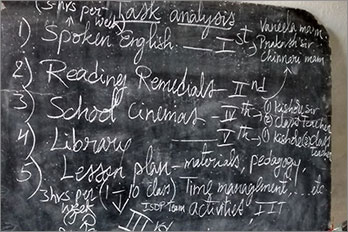 (3 hrs per week) Task analysis
1) Spoken English — I st Vaneela mam
Prakash sir
Chinnari mam
2) Reading Remedials - II nd
3) School cinemas - IV th → (1) Kishore sir
(2) Class teacher
4) Library — V th → (1) Kishore (2) Class teacher
5) Lesson plan - materials, pedagogy,
3 hrs per week (1 - 10 class) Time management, ... etc
ISDP Team activities III
III